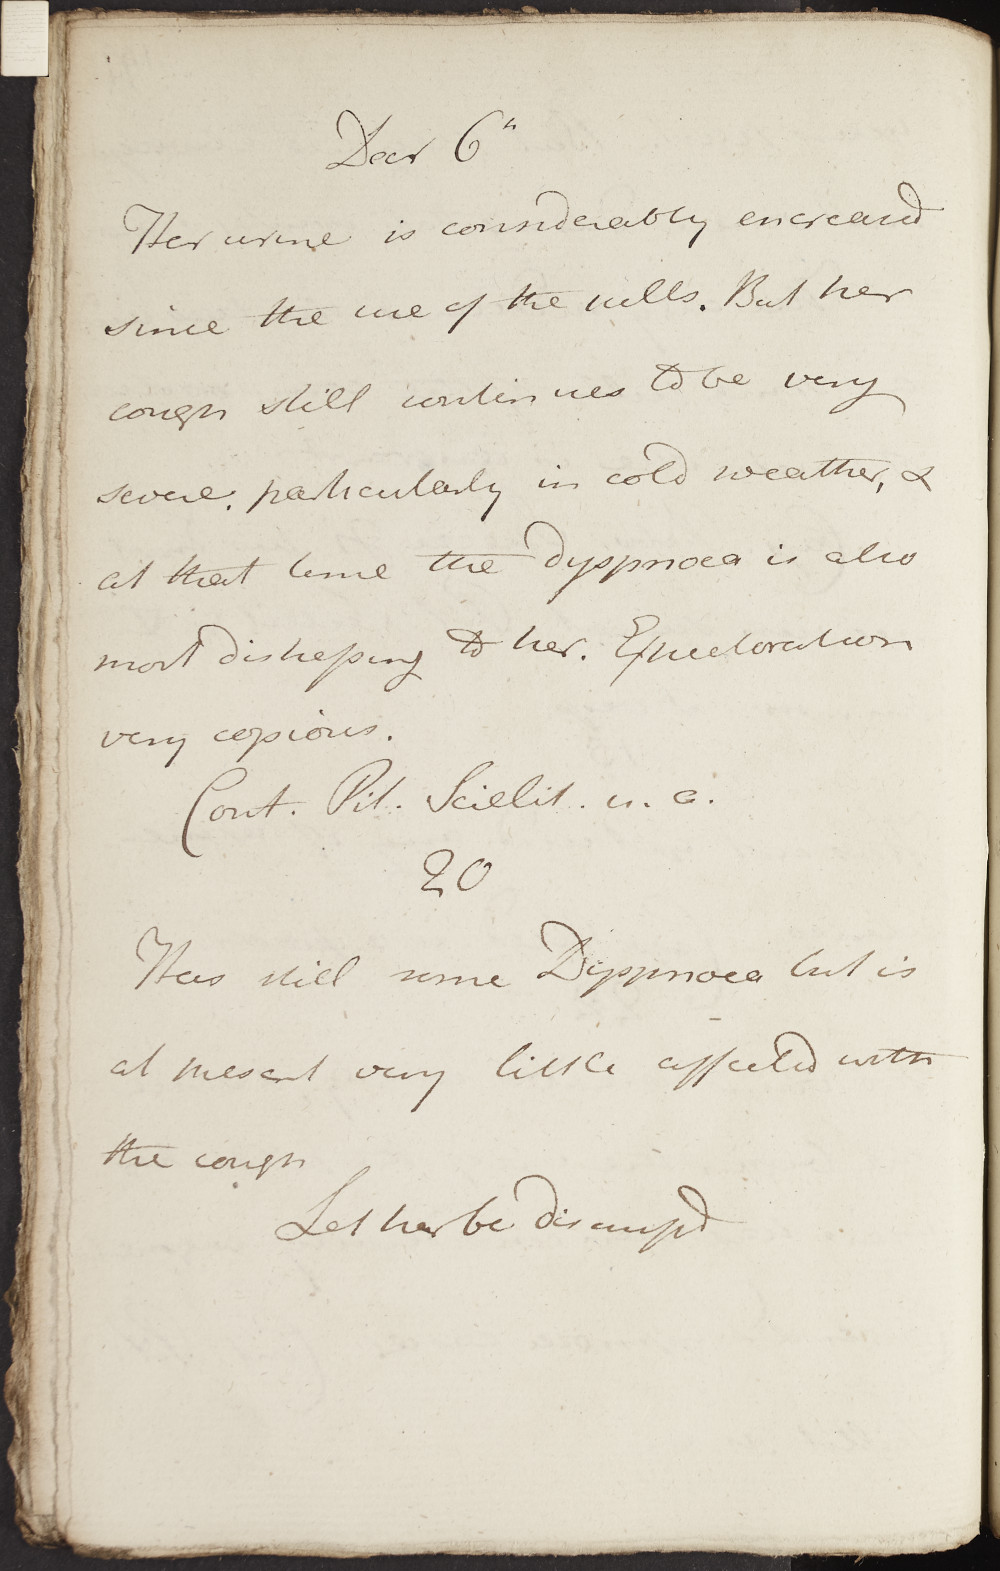 Decr 6th
Her urine is considerably encreas'd
since the use of the pills. But her
cough still continues to be very
severe, particularly in cold weather, &
at that time the dyspnoea is also
most distressing to her. Expectoration
very copious.
Cont. Pil. Scillit. u. a.
20
Has still some Dyspnoea but is
at present very little affected with
the cough
Let her be dismiss'd